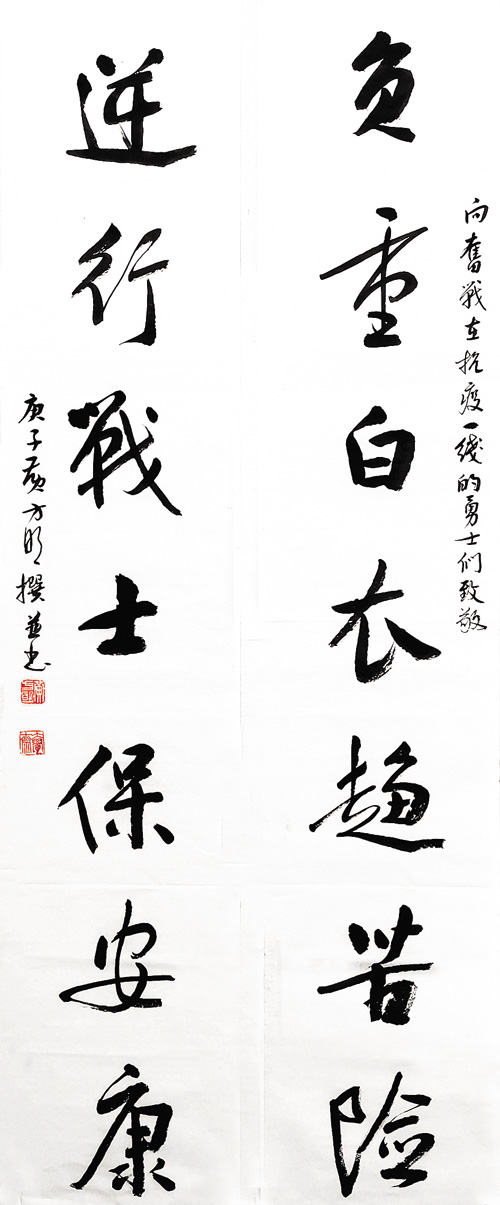 向奮戰在抗疫一綫的勇士们致敬
负重白衣趋苦險
逆行戰士保安康
庚子方明撰並书